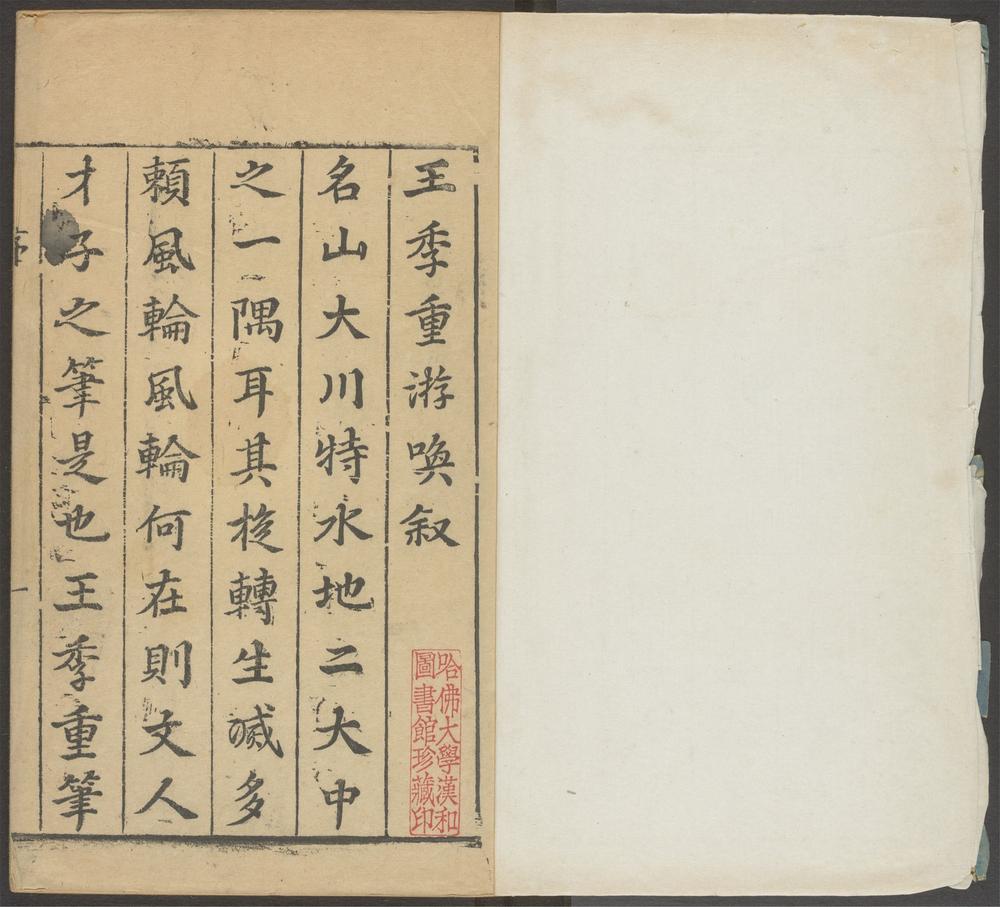 王季重游喚叙
名山大川特水地二大中
之一隅耳其旋轉生滅多
頼風輪風輪何在則文人
才子之筆是也王季重筆
序
一
哈佛大學漢和
圖書館珍藏印